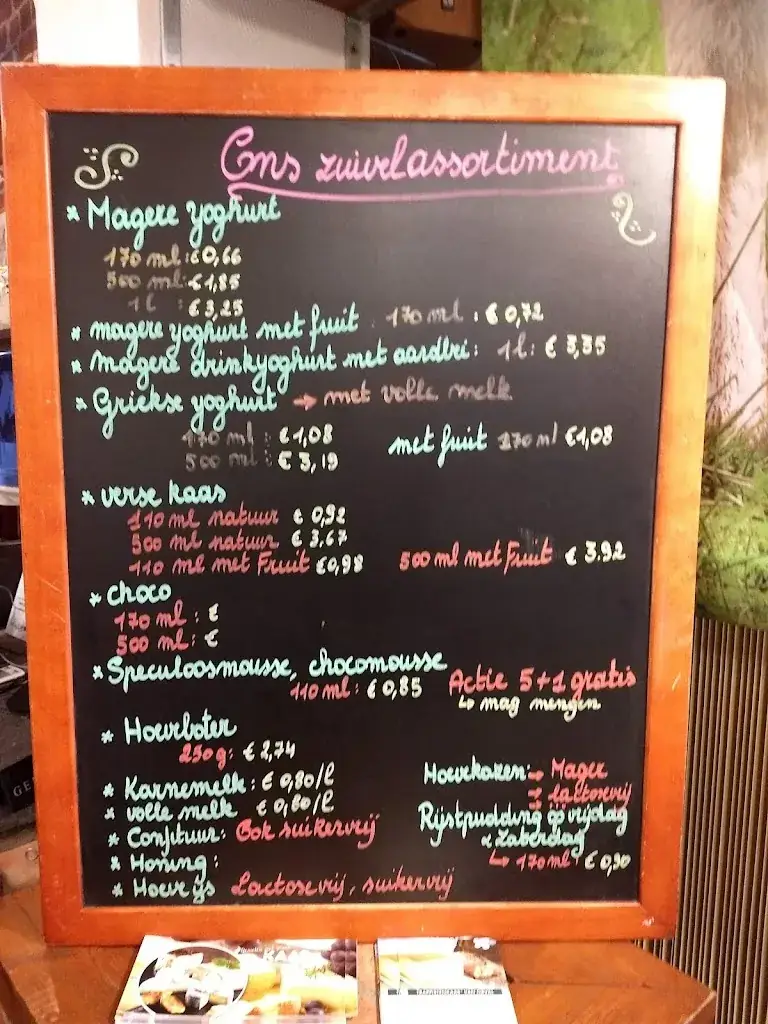 Ons zuivelassortiment
* Magere yoghurt
170 ml: € 0,66
500 ml: € 1,85
1 l : € 3,25
* magere yoghurt met fruit 170 ml : € 0,72
* magere drinkyoghurt met aardbei: 1 l: € 3,35
* Griekse yoghurt → met volle melk
170 ml : € 1,08 met fruit 170 ml € 1,08
500 ml : € 3,19
* verse kaas
110 ml natuur € 0,92
500 ml natuur € 3,67
110 ml met Fruit € 0,98 500 ml met Fruit € 3.92
* choco
170 ml : €
500 ml : €
* Speculoosmousse, chocomousse
110 ml: € 0,85 Actie 5+1 gratis
↳ mag mengen
* Hoeveboter
250 g: € 2,74
* Karnemelk: € 0,80/l
* volle melk € 0,80/l
* Confituur: Ook suikervrij
* Honing:
* Hoeve ijs Lactosevrij, suikervrij
Hoevekazen: → Mager
→ Lactosevrij
Rijstpudding op vrijdag
& Zaterdag
↳ 170 ml € 0,90